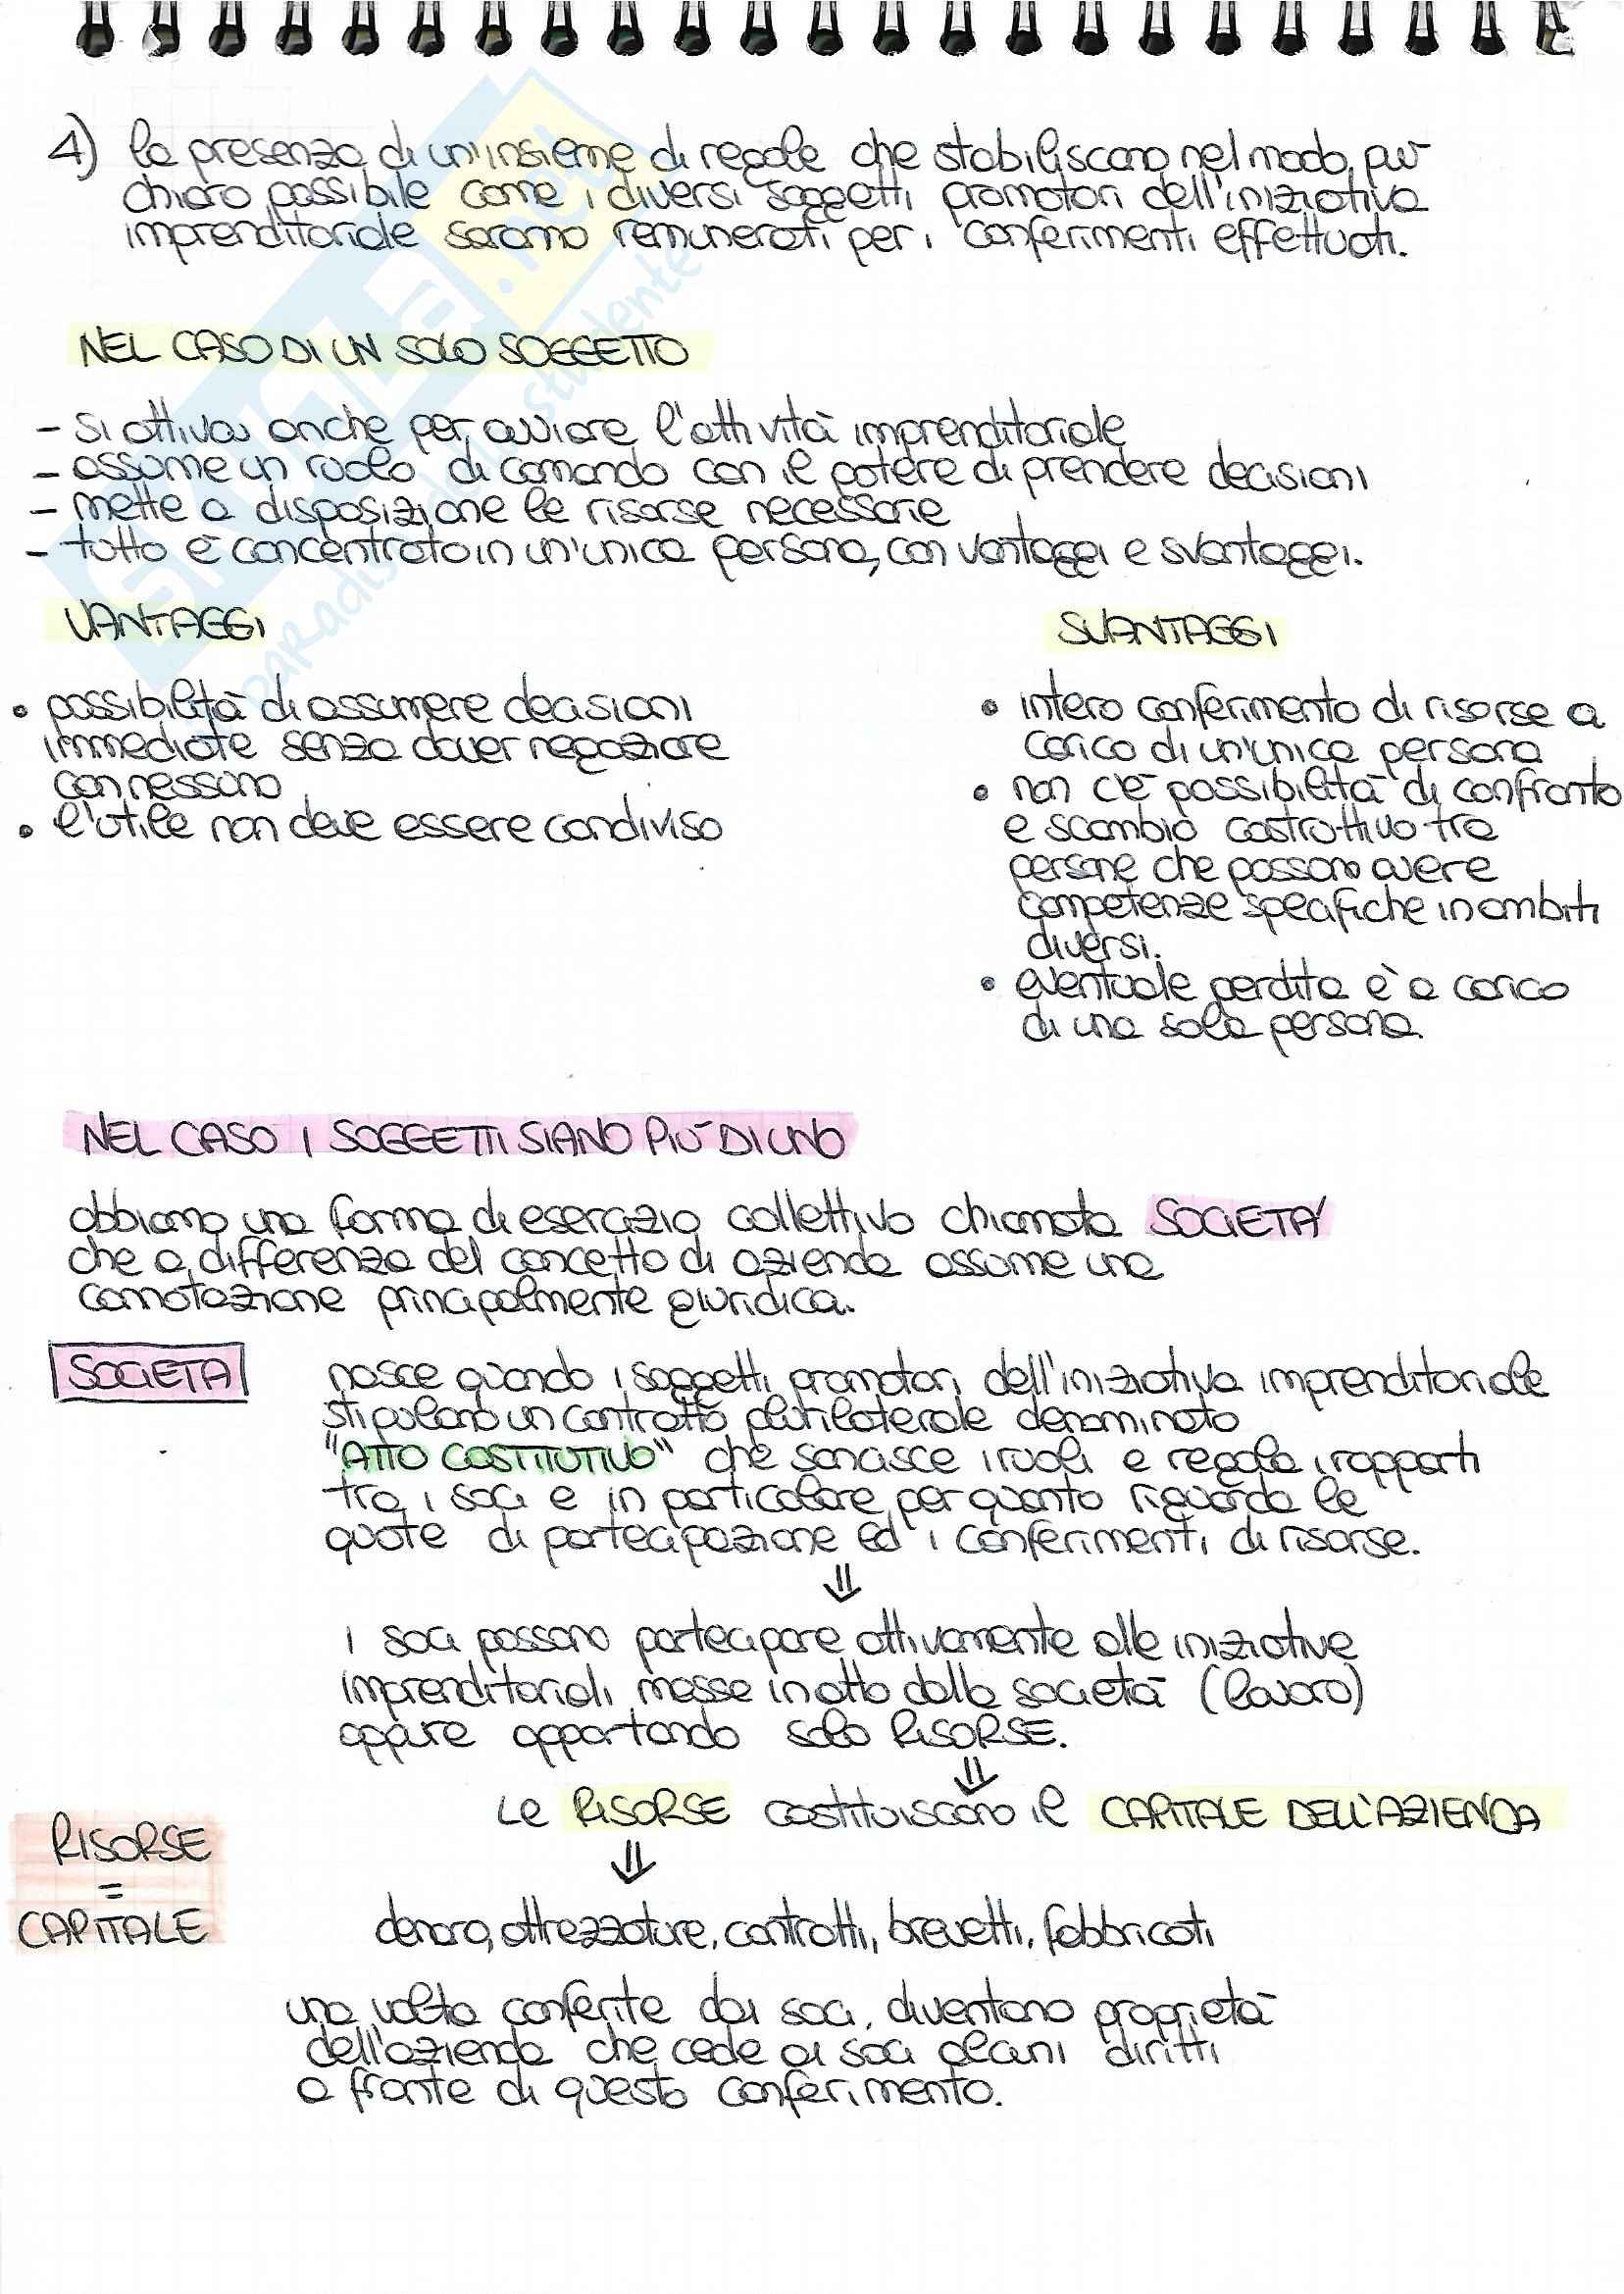 4) la presenza di un'insieme di regole che stabiliscano nel modo più
chiaro possibile come i diversi soggetti promotori dell'iniziativa
imprenditoriale saranno remunerati per i conferimenti effettuati.
NEL CASO DI UN SOLO SOGGETTO
- si attiva anche per avviare l'attività imprenditoriale
- assume un ruolo di comando con il potere di prendere decisioni
- mette a disposizione le risorse necessarie
- tutto è concentrato in un'unica persona, con vantaggi e svantaggi.
VANTAGGI
• possibilità di assumere decisioni
immediate senza dover negoziare
con nessuno
• l'utile non deve essere condiviso
SVANTAGGI
• intero conferimento di risorse a
carico di un'unica persona
• non c'è possibilità di confronto
e scambio costruttivo tra
persone che possono avere
competenze specifiche in ambiti
diversi.
• eventuale perdita è a carico
di una sola persona.
NEL CASO I SOGGETTI SIANO PIÙ DI UNO
abbiamo una forma di esercizio collettivo chiamata SOCIETA'
che a differenza del concetto di azienda assume una
connotazione principalmente giuridica.
SOCIETA
nasce quando i soggetti promotori dell'iniziativa imprenditoriale
stipulano un contratto plurilaterale denominato
"ATTO COSTITUTIVO" che sancisce i ruoli e regola i rapporti
tra i soci e in particolare per quanto riguarda le
quote di partecipazione ed i conferimenti di risorse.
⇓
i soci possono partecipare attivamente alle iniziative
imprenditoriali messe in atto dalla società (lavoro)
oppure apportando solo RISORSE.
⇓
Le RISORSE costituiscono il CAPITALE DELL'AZIENDA
⇓
RISORSE
=
CAPITALE
denaro, attrezzature, contratti, brevetti, fabbricati
una volta conferite dai soci, diventano proprietà
dell'azienda che cede ai soci alcuni diritti
a fronte di questo conferimento.